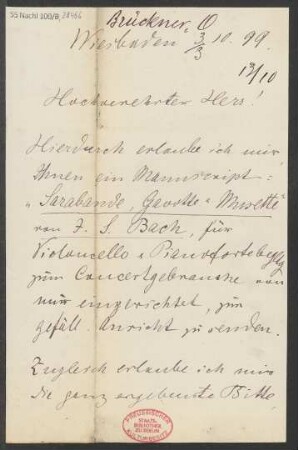 55 Nachl 100/B,
Brückner, O
Wiesbaden 3/3 10. 99.
13/10
Hochverehrter Herr!
Hierdurch erlaube ich mir
Ihnen ein Manuscript:
„Sarabande, Gavotte u Musette"
von J. S. Bach, für
Violoncello u Pianoforte
zum Concertgebrauche von
mir eingerichtet, zur
gefäll. Ansicht zu senden.
Zugleich erlaube ich mir
die ganz ergebenste Bitte